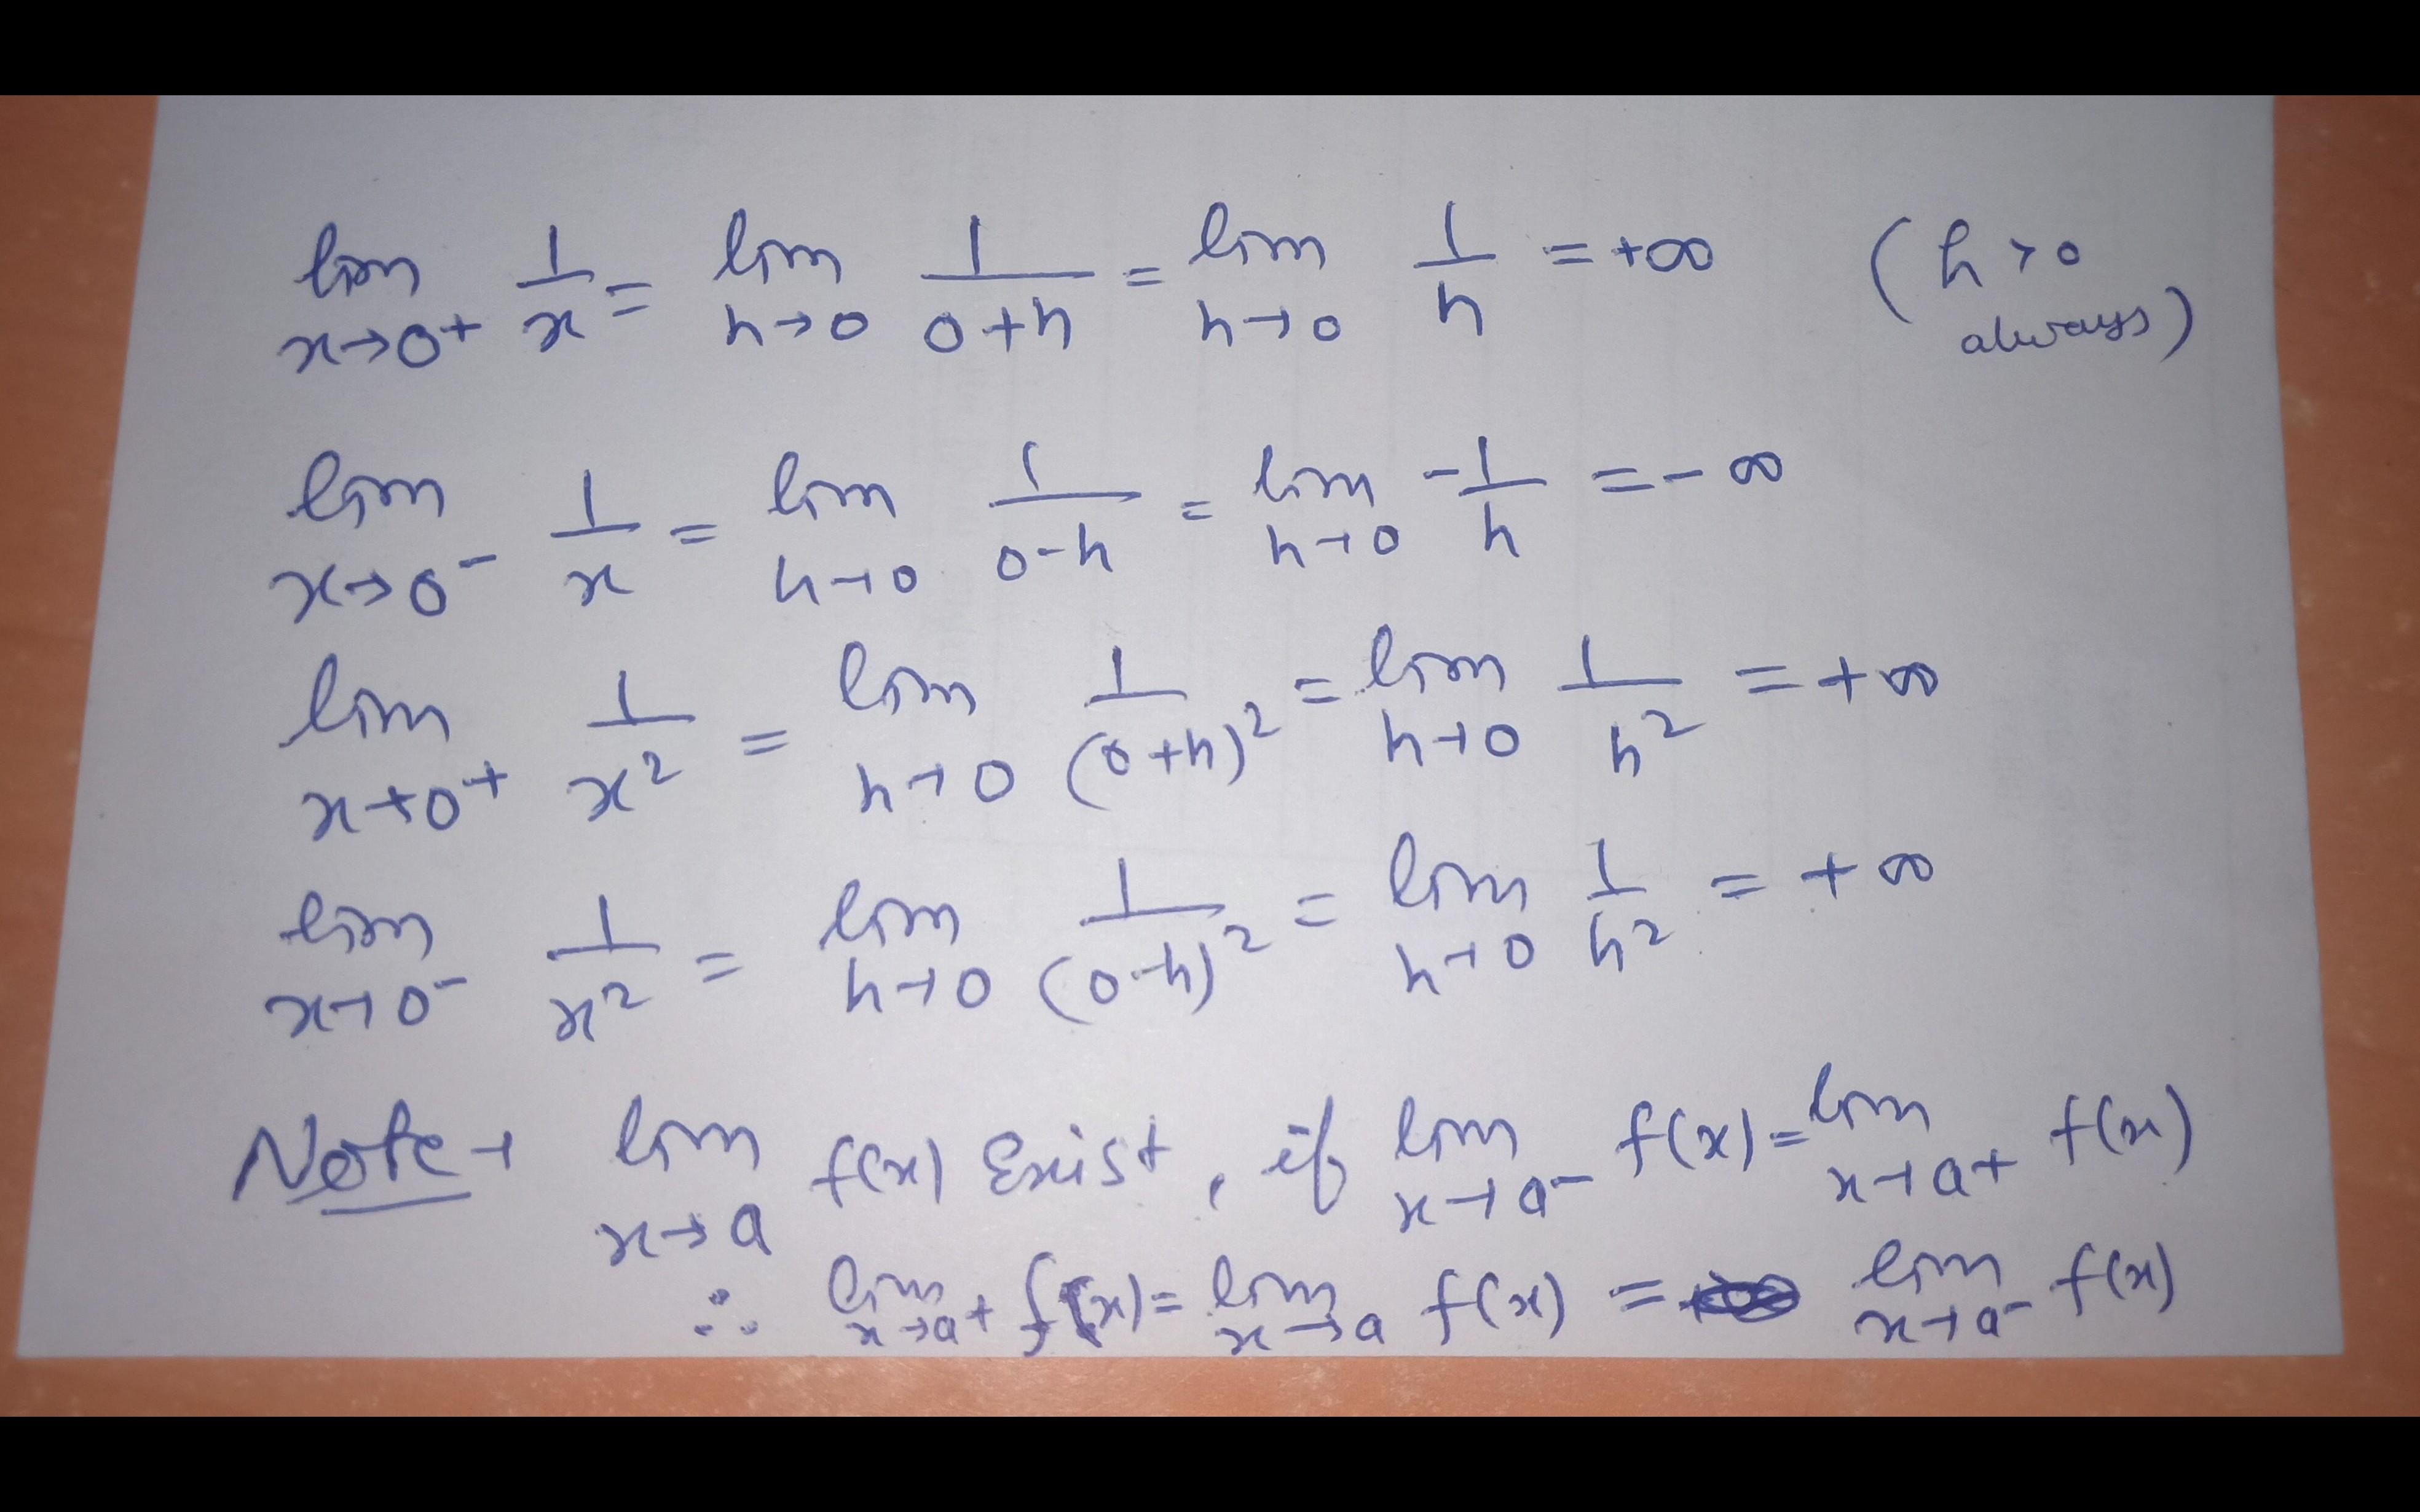 lim x→0+ 1/x = lim h→0 1/(0+h) = lim h→0 1/h = +∞ (h>0 always)
lim x→0- 1/x = lim h→0 1/(0-h) = lim h→0 -1/h = -∞
lim x→0+ 1/x² = lim h→0 1/(0+h)² = lim h→0 1/h² = +∞
lim x→0- 1/x² = lim h→0 1/(0-h)² = lim h→0 1/h² = +∞
Note→ lim x→a f(x) Exist, if lim x→a- f(x) = lim x→a+ f(x)
∴ lim x→a+ f(x) = lim x→a f(x) = lim x→a- f(x)